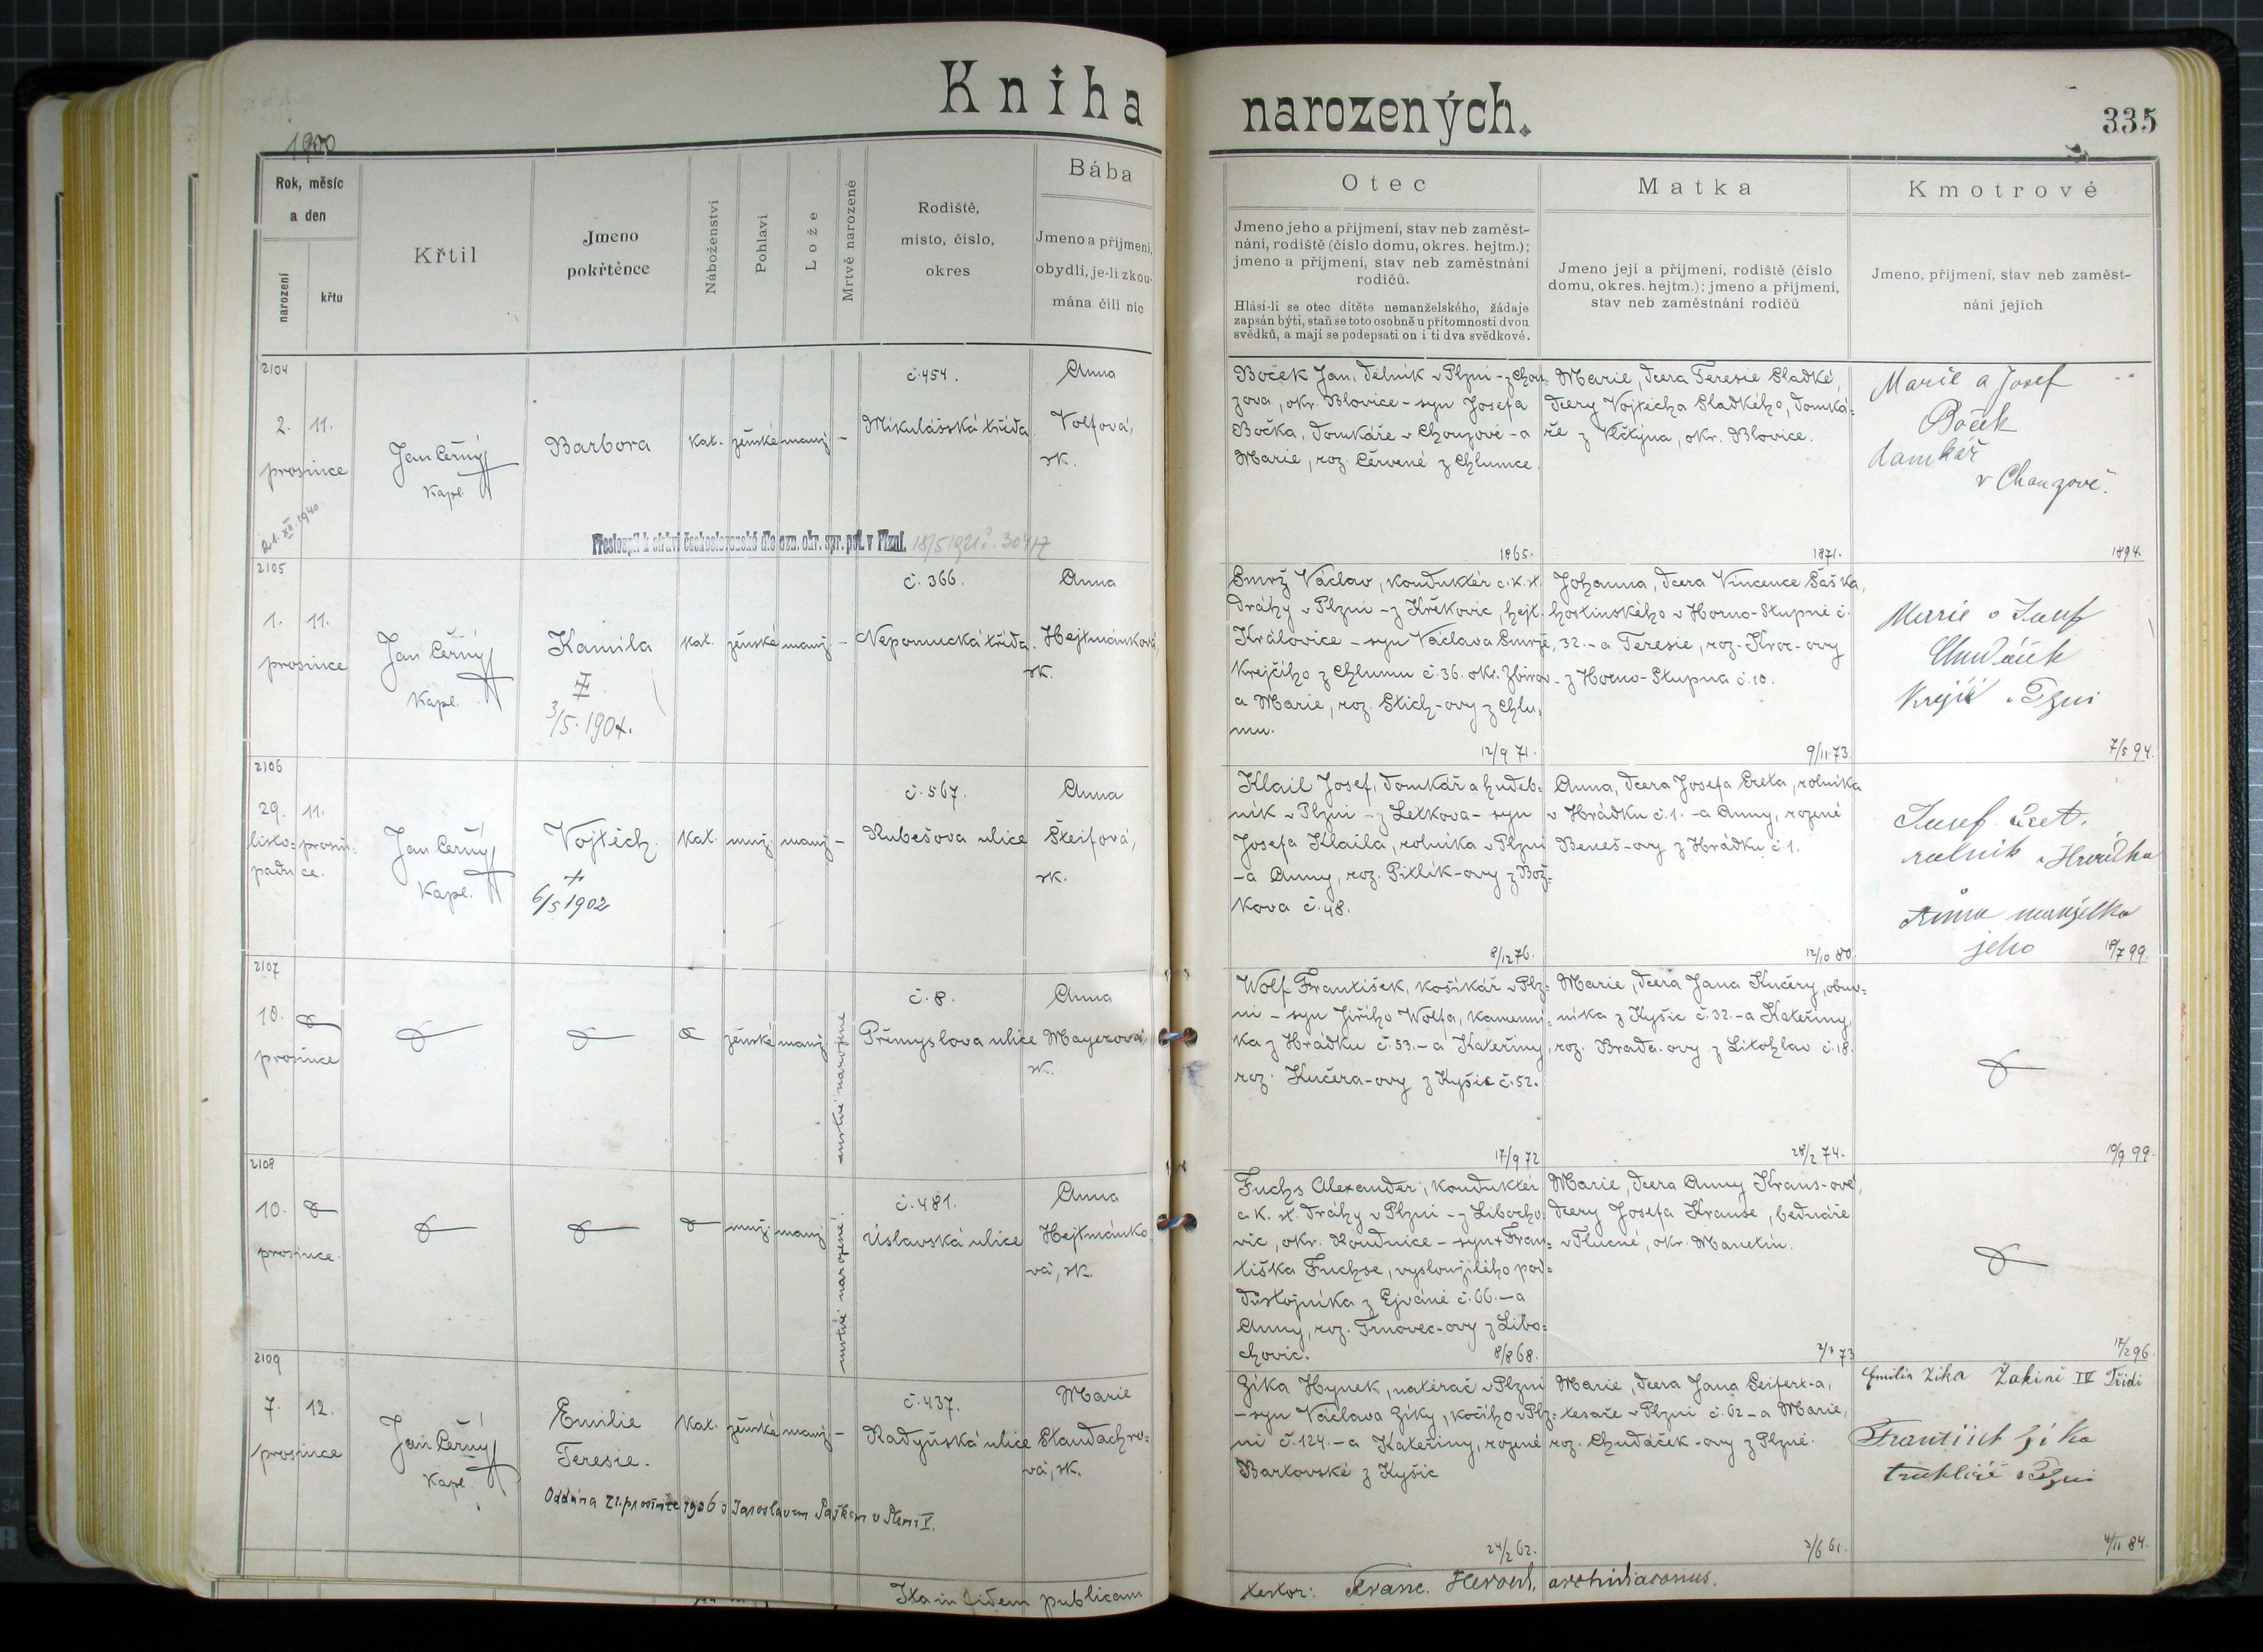 Kniha narozených.
335
1900
Rok, měsíc
a den
narození
křtu
Křtil
Jmeno
pokřtěnce
Náboženství
Pohlaví
Lože
Mrtvě narozené
Rodiště,
místo, číslo,
okres
Bába
Jmeno a příjmení,
obydlí, je-li zkou-
mána čili nic
Otec
Jmeno jeho a příjmení, stav neb zaměst-
nání, rodiště (číslo domu, okres. hejtm.);
jmeno a příjmení, stav neb zaměstnání
rodičů.
Hlásí-li se otec dítěte nemanželského, žádaje
zapsán býti, staň se toto osobně u přítomnosti dvou
svědků, a mají se podepsati on i ti dva svědkové.
Matka
Jmeno její a příjmení, rodiště (číslo
domu, okres. hejtm.); jmeno a příjmení,
stav neb zaměstnání rodičů
Kmotrové
Jmeno, příjmení, stav neb zaměst-
nání jejich
2104
2. 11.
prosince
21. XII. 1940
Jan Černý
Kapl.
Barbora
kat. ženské manž. –
č. 454.
Mikulášská třída
Anna
Volfová,
zk.
Přestoupil k církvi československé dle ozn. okr. spr. pol. v Plzni. 18/5 1921 č. 30417
Boček Jan, dělník v Plzni – z Chou-
zova, okr. Blovice – syn Josefa
Bočka, domkáře v Chouzově – a
Marie, roz. Červené z Chlumce.
1865.
Marie, dcera Teresie Sladké,
dcery Vojtěcha Sladkého, domká-
ře z Vlčtýna, okr. Blovice.
1871.
Marie a Josef
Boček
domkář
v Chouzově.
1894.
2105
1. 11.
prosince
Jan Černý
Kapl.
Kamila
3/5. 1904.
kat. ženské manž. –
č. 366.
Nepomucká třída.
Anna
Hejtmánková,
zk.
Smrž Václav, konduktér c. k. st.
dráhy v Plzni – z Křékovic, hejt.
Královice – syn Václava Smrže,
krejčího z Chlumu č. 36. okr. Zbirov –
a Marie, roz. Stich-ovy z Chlu-
mu.
12/9 71.
Johanna, dcera Vincence Šaška,
hostinského v Horno-Stupně č.
32. – a Teresie, roz. Kroc-ovy
z Horno-Stupna č. 10.
9/11 73.
Marie a Josef
Chudáček
Krejčí v Plzni
7/5 94.
2106
29. 11.
listo- prosin-
padu ce.
Jan Černý
Kapl.
Vojtěch
+
6/5 1902
kat. muž. manž. –
č. 567.
Rubešova ulice
Anna
Šteifová,
zk.
Klail Josef, domkář a hudeb-
ník v Plzni – z Letkova – syn
Josefa Klaila, rolníka v Plzni
– a Anny, roz. Pitlík-ovy z Bož-
kova č. 48.
8/12 76.
Anna, dcera Josefa Ereta, rolníka
v Hrádku č. 1. – a Anny, rozené
Beneš-ovy z Hrádku č. 1.
12/10 80.
Josef Eret.
rolník v Hrádku
Anna manželka
jeho
18/7 99.
2107
10.
prosince
ženské manž.
mrtvě narozené
č. 8.
Přemyslova ulice
Anna
Mayerová,
zk.
Wolf František, košíkář v Plz-
ni – syn Jiřího Wolfa, kamenní-
ka z Hrádku č. 53. – a Kateřiny,
roz. Kučera-ovy z Kyšic č. 52.
17/9 72
Marie, dcera Jana Kučery, obuv-
níka z Kyšic č. 32. – a Kateřiny,
roz. Brada-ovy z Litohlav č. 18.
28/2 74.
10/9 99.
2108
10.
prosince.
muž. manž.
mrtvě narozené.
č. 481.
Úslavská ulice
Anna
Hejtmánko-
vá, zk.
Fuchs Alexander, konduktér
c. k. st. dráhy v Plzni – z Libocho-
vic, okr. Roudnice – syn + Fran-
tiška Fuchse, vysloužilého pod-
důstojníka z Ejváně č. 66. – a
Anny, roz. Trnovec-ovy z Libo-
chovic.
8/8 68.
Marie, dcera Anny Kraus-ové,
dcery Josefa Krause, bednáře
v Plucné, okr. Manetín.
2/7 73
17/2 96.
2109
7. 12.
prosince
Jan Černý
Kapl.
Emilie
Teresie.
kat. ženské manž. –
č. 437.
Radyňská ulice
Marie
Staudachro-
vá, zk.
Oddána 21. prosince 1906 s Jaroslavem Paškem v Plzni V.
Zíka Hynek, natěrač v Plzni
– syn Václava Zíky, kočího v Plz-
ni č. 124. – a Kateřiny, rozené
Bartovské z Kyšic
24/2 62.
Marie, dcera Jana Seifert-a,
tesaře v Plzni č. 62 – a Marie,
roz. Chudáček-ovy z Plzně.
3/6 61.
Emilia Zika Žákině IV Třídi
František Zíka
truhlář v Plzni
4/11 84.
Ita in fidem publicam
testor: Franc. Herold, archidiaconus.